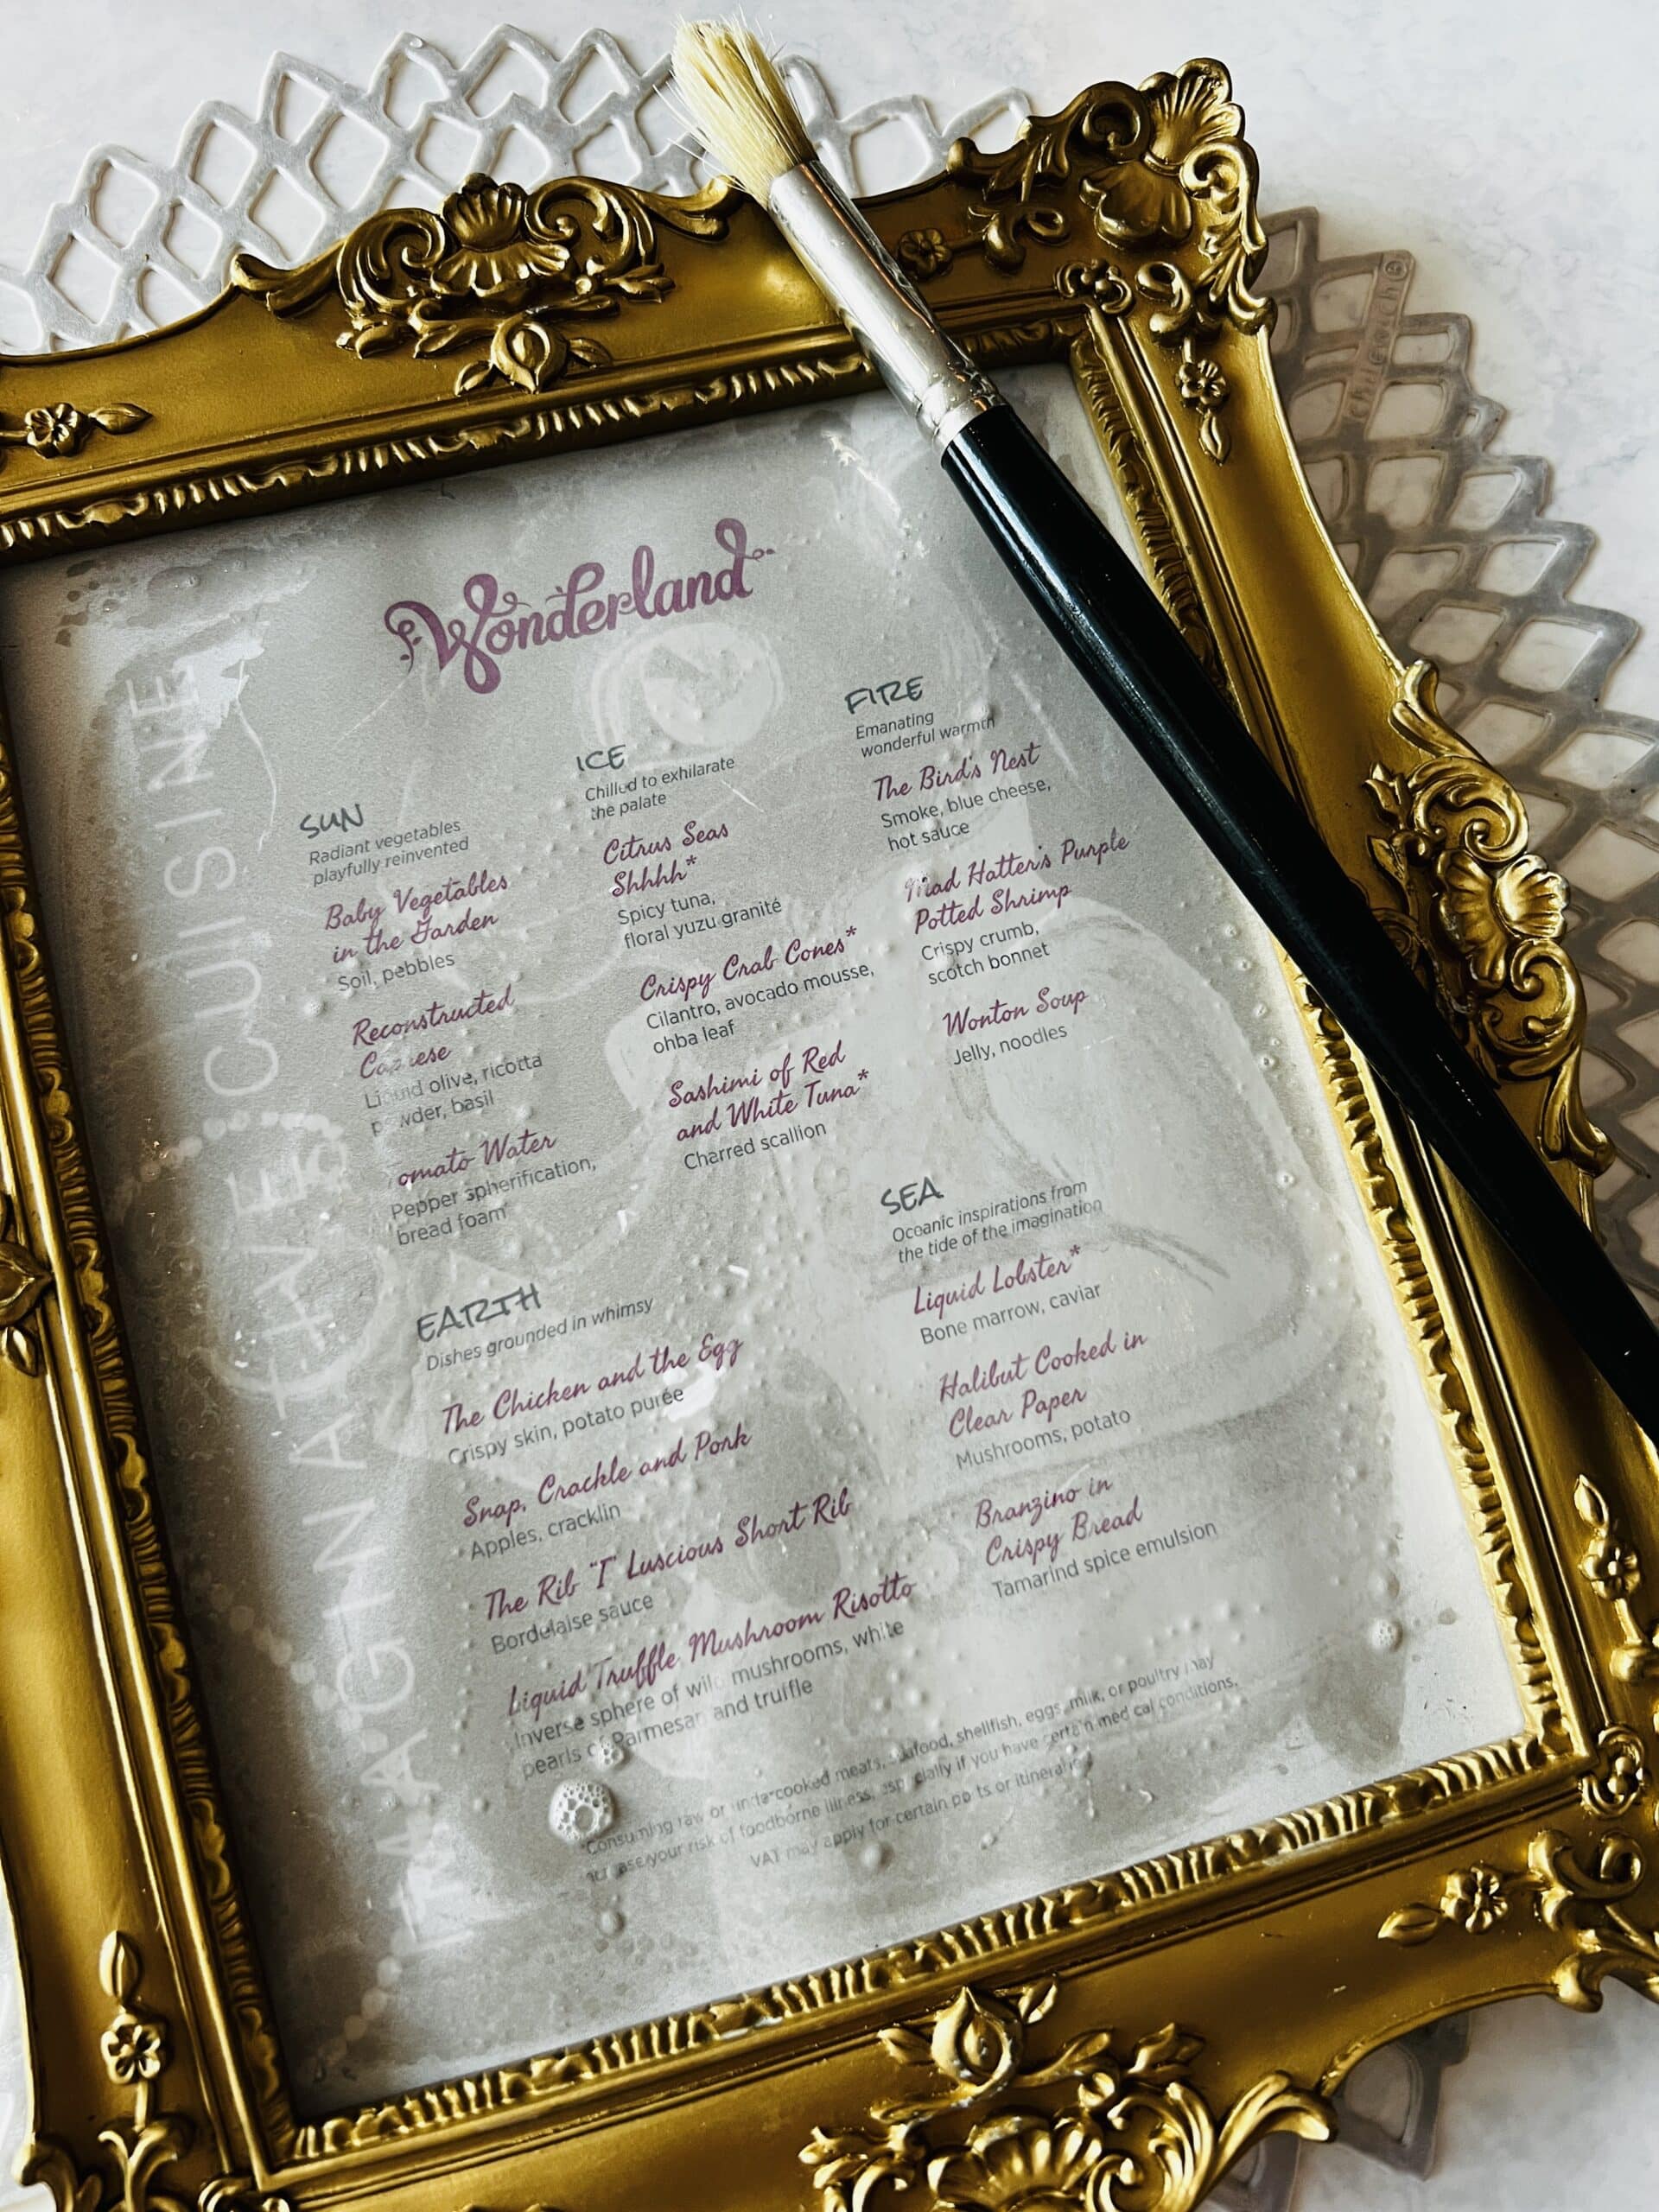 Wonderland
IMAGINATIVE CUISINE
SUN
Radiant vegetables
playfully reinvented
Baby Vegetables
in the Garden
Soil, pebbles
Reconstructed
Liquid olive, ricotta
basil
Water
Pepper spherification,
bread foam
ICE
Chilled to exhilarate
the palate
Citrus Seas
Shhhh*
Spicy tuna,
floral yuzu granité
Crispy Crab Cones*
Cilantro, avocado mousse,
ohba leaf
Sashimi of Red
and White Tuna*
Charred scallion
FIRE
Emanating
wonderful warmth
The Bird's Nest
Smoke, blue cheese,
hot sauce
Mad Hatter's Purple
Potted Shrimp
Crispy crumb,
scotch bonnet
Wonton Soup
Jelly, noodles
SEA
Oceanic inspirations from
the tide of the imagination
Liquid Lobster*
Bone marrow, caviar
Halibut Cooked in
Clear Paper
Mushrooms, potato
Branzino in
Crispy Bread
Tamarind spice emulsion
EARTH
Dishes grounded in whimsy
The Chicken and the Egg
Crispy skin, potato purée
Snap, Crackle and Pork
Apples, cracklin
The Rib "I" Luscious Short Rib
Bordelaise sauce
Liquid Truffle Mushroom Risotto
Inverse sphere of wild mushrooms, white
pearls of Parmesan and truffle
*Consuming raw or undercooked meats, seafood, shellfish, eggs, milk, or poultry may
increase your risk of foodborne illness, especially if you have certain medical conditions.
VAT may apply for certain ports or itineraries.
chilewich©